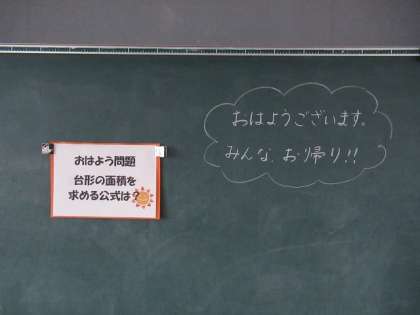 おはよう問題
台形の面積を
求める公式は?
おはようございます。
みんな、お帰り!!